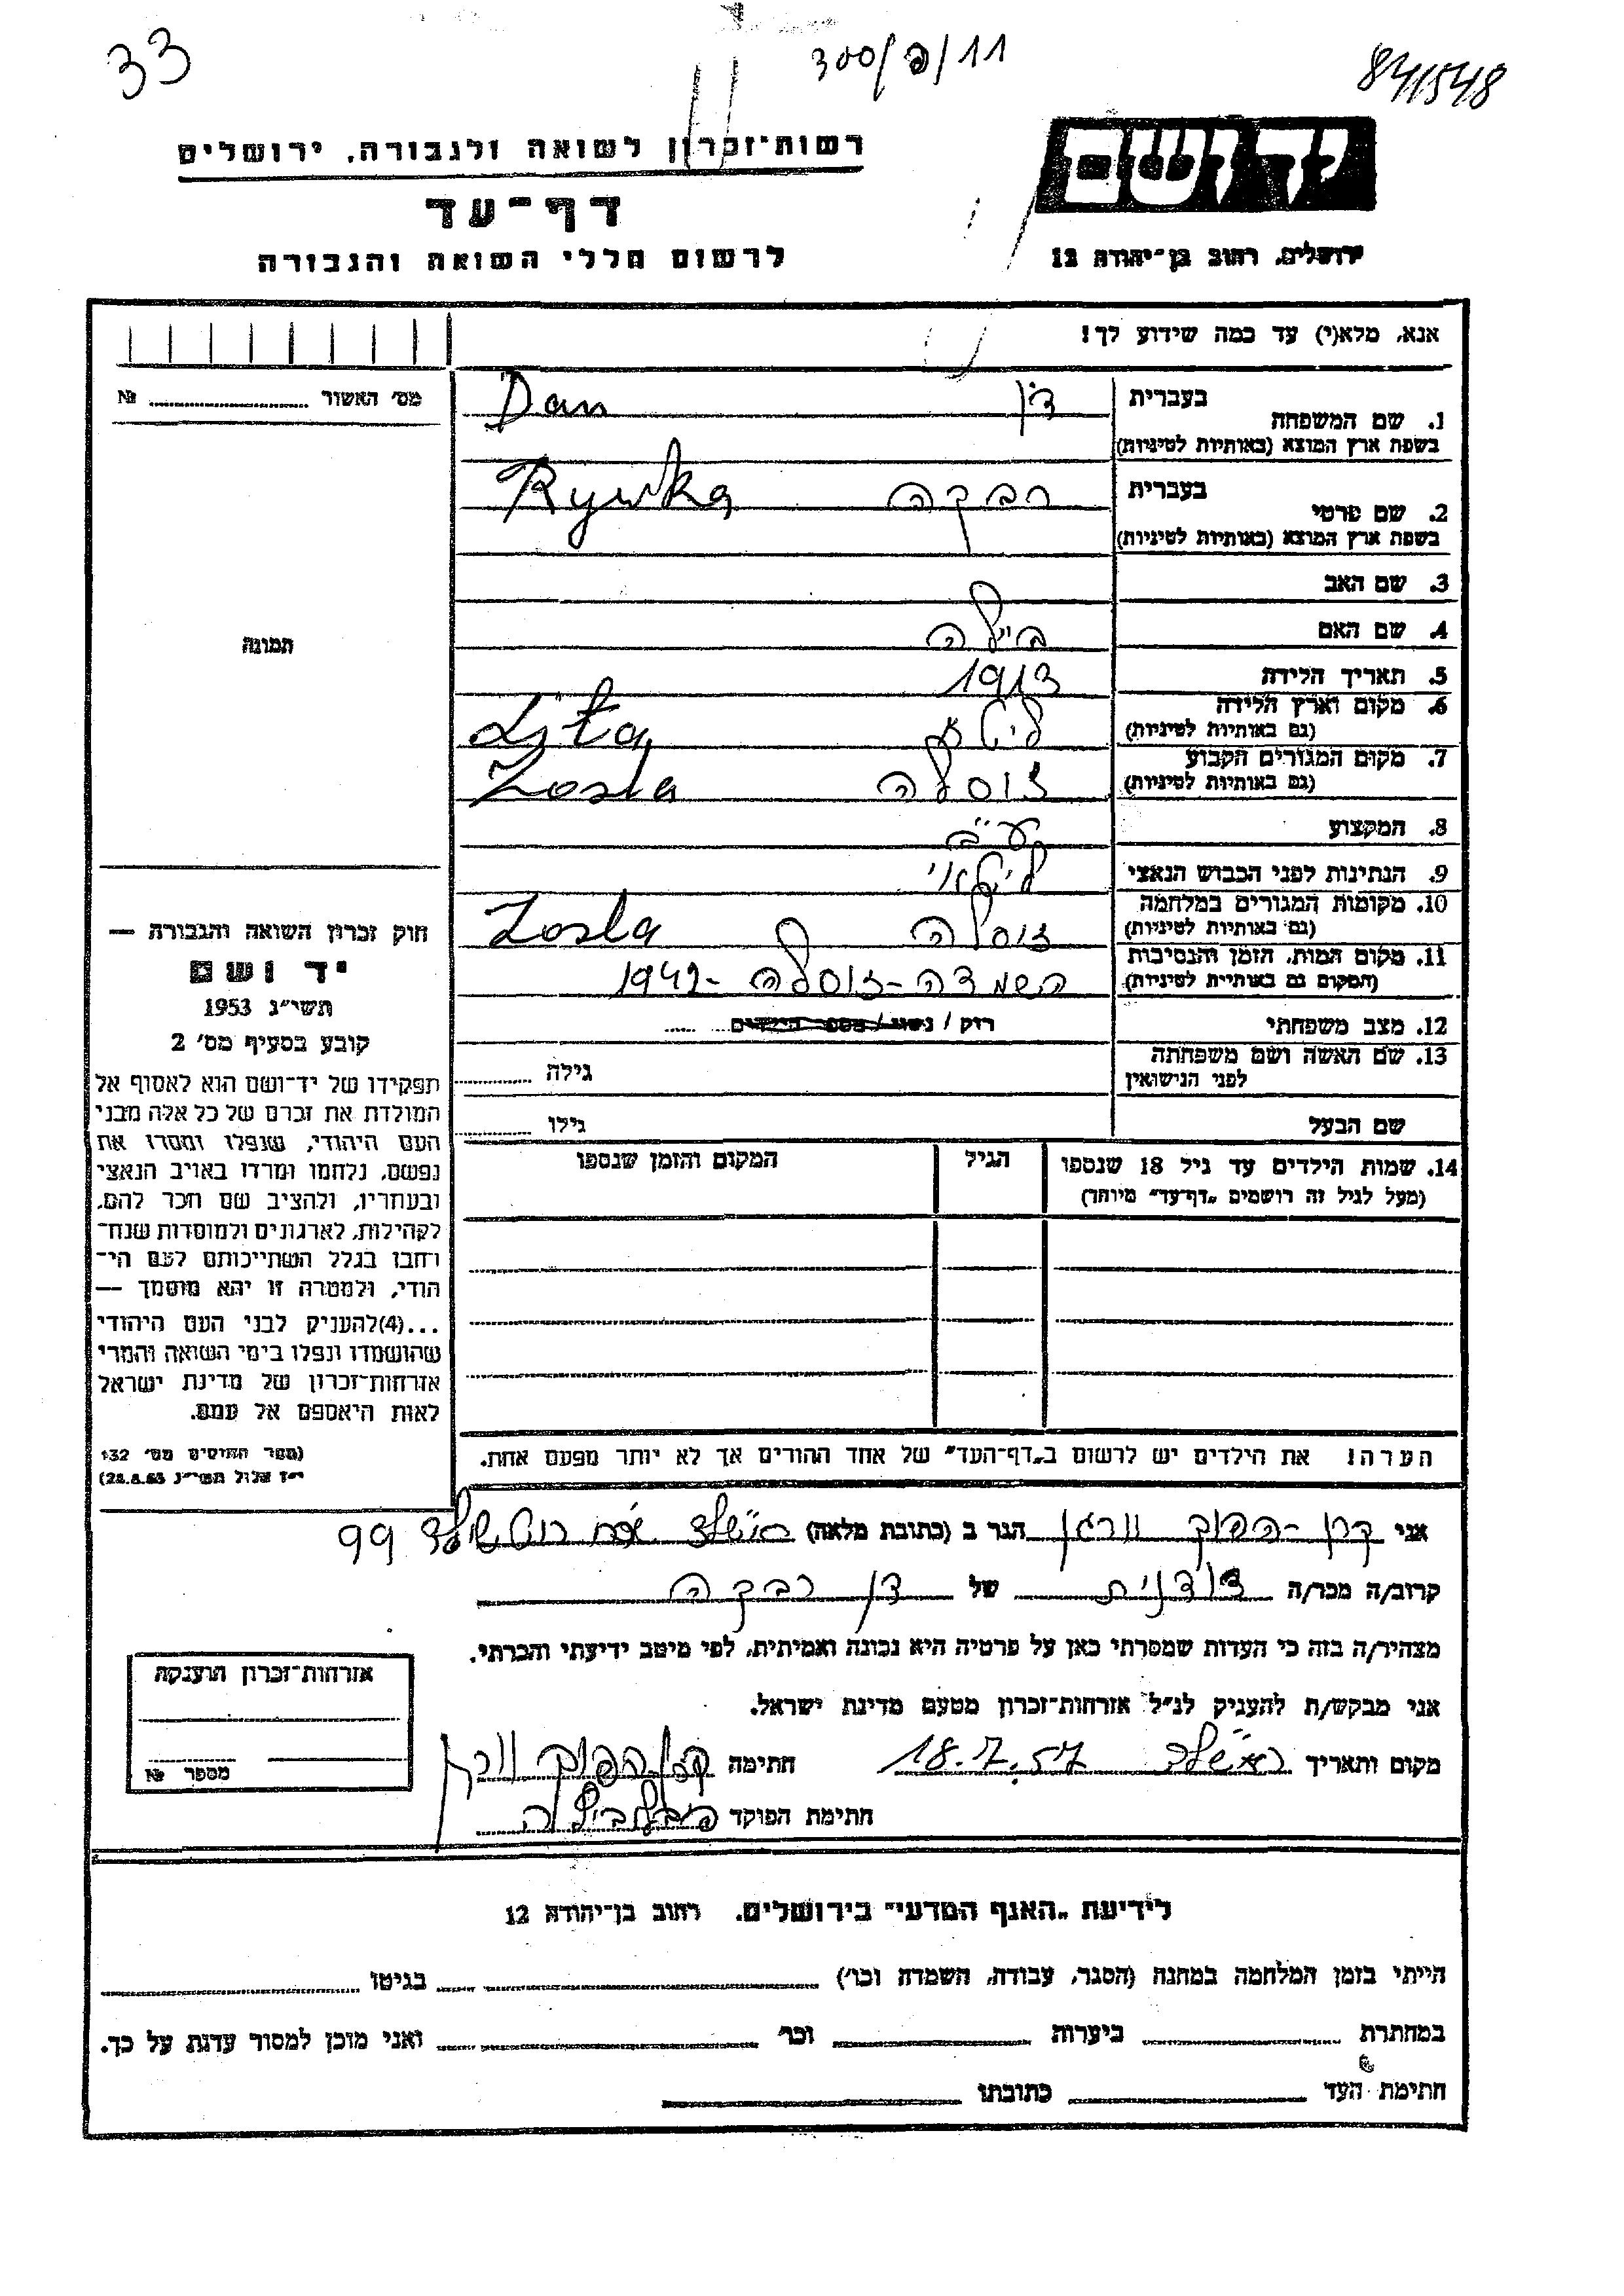 33
300/פ/11
841548
יד ושם
ירושלים, רחוב בן־יהודה 12
רשות־זכרון לשואה ולגבורה, ירושלים
דף־עד
לרשום חללי השואה והגבורה
אנא, מלא(י) עד כמה שידוע לך!
מס' האשור № ........
תמונה
1. שם המשפחה בעברית דן Dan
בשפת ארץ המוצא (באותיות לטיניות)
2. שם פרטי בעברית רבקה Rywka
בשפת ארץ המוצא (באותיות לטיניות)
3. שם האב
4. שם האם ביילה
5. תאריך הלידה 1913
6. מקום וארץ הלידה ליטא Lita
(גם באותיות לטיניות)
7. מקום המגורים הקבוע זוסלה Zosla
(גם באותיות לטיניות)
8. המקצוע עק"ב
9. הנתינות לפני הכבוש הנאצי ליטאי
10. מקומות המגורים במלחמה זוסלה Zosla
(גם באותיות לטיניות)
11. מקום המות, הזמן והנסיבות השמדה - זוסלה - 1942
(המקום גם באותיות לטיניות)
12. מצב משפחתי רוק / נשוי / מספר הילדים
13. שם האשה ושם משפחתה גילה
לפני הנישואין
שם הבעל גילו
14. שמות הילדים עד גיל 18 שנספו הגיל המקום והזמן שנספו
(מעל לגיל זה רושמים „דף־עד" מיוחד)
חוק זכרון השואה והגבורה —
יד ושם
תשי"ג 1953
קובע בסעיף מס' 2
תפקידו של יד־ושם הוא לאסוף אל
המולדת את זכרם של כל אלה מבני
העם היהודי, שנפלו ומסרו את
נפשם, נלחמו ומרדו באויב הנאצי
ובעוזריו, ולהציב שם וזכר להם,
לקהילות, לארגונים ולמוסדות שנח־
רבו בגלל השתייכותם לעם הי־
הודי, ולמטרה זו יהא מוסמך —
...(4)להעניק לבני העם היהודי
שהושמדו ונפלו בימי השואה והמרי
אזרחות־זכרון של מדינת ישראל
לאות היאספם אל עמם.
(ספר החוקים מס' 132
י"ז אלול תשי"ג 28.8.53)
הערה! את הילדים יש לרשום ב„דף־העד" של אחד ההורים אך לא יותר מפעם אחת.
אני הגר ב (כתובת מלאה) רוטשילד 99
קרוב/ה מכר/ה דודנית של דן רבקה
מצהיר/ה בזה כי העדות שמסרתי כאן על פרטיה היא נכונה ואמיתית, לפי מיטב ידיעתי והכרתי.
אני מבקש/ת להעניק לנ"ל אזרחות־זכרון מטעם מדינת ישראל.
מקום ותאריך 18.7.57 חתימה
חתימת הפוקד
אזרחות־זכרון הוענקה
מספר №
לידיעת „האגף המדעי" בירושלים. רחוב בן־יהודה 12
הייתי בזמן המלחמה במחנה (הסגר, עבודה, השמדה וכו') בגיטו
במחתרת ביערות וכו' ואני מוכן למסור עדות על כך.
חתימת העד כתובתו